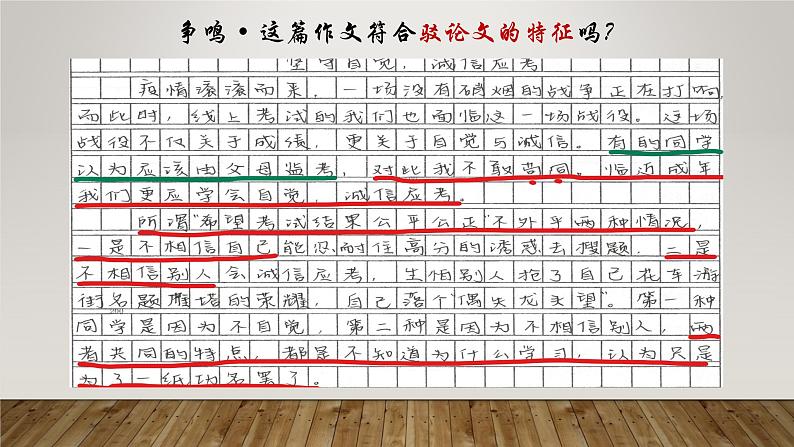 争鸣·这篇作文符合驳论文的特征吗?
坚守自觉,诚信应考
疫情滚滚而来,一场没有硝烟的战争正在打响,
而此时,线上考试的我们也面临这一场战役。这场
战役不仅关于成绩,更关于自觉与诚信。有的同学
认为应该由父母监考,对此我不敢苟同。临近成年
我们更应学会自觉,诚信应考。
所谓“希望考试结果公平公正”不外乎两种情况,
一是不相信自己能忍耐住高分的诱惑去搜题,二是
不相信别人会诚信应考,生怕别人抢了自己花车游
街名题雁塔的荣耀,自己落个偶失龙头望”。第一种
同学是因为不自觉,第二种是因为不相信别人,两
200
者共同的特点,都是不知道为什么学习,认为只是
为了一纸功名罢了。